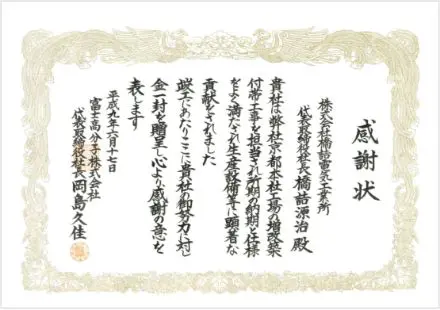 感謝状
株式会社橋詰電気工業所
代表取締役社長 橋詰源治 殿
貴社は弊社京都本社工場の増改築
付帯工事を担当され所期の納期と仕様
をよく満たされ生産設備等に顕著な
貢献をされました
竣工にあたりここに貴社の御努力に対し
金一封を贈呈し心より感謝の意を
表します
平成九年六月十七日
富士高分子株式会社
代表取締役社長 岡島久佳